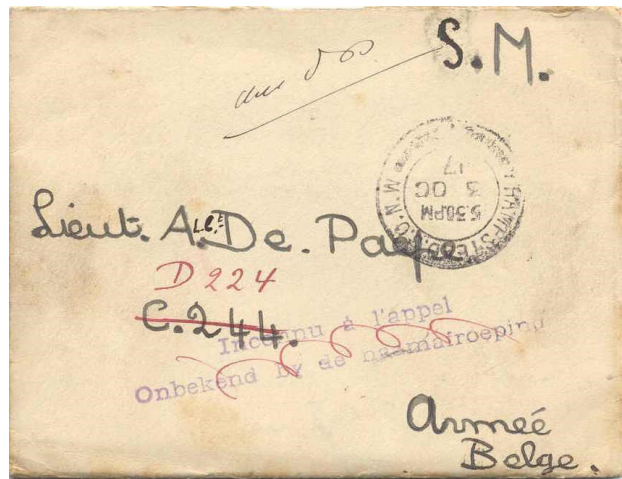 S.M.
au dos
HAMPSTEAD. B.O. N.W.
5.30PM
3 OC
17
Lieut. A. De. Page
D 224
C.244.
Inconnu à l'appel
Onbekend by de naamafroeping
Armeé
Belge.